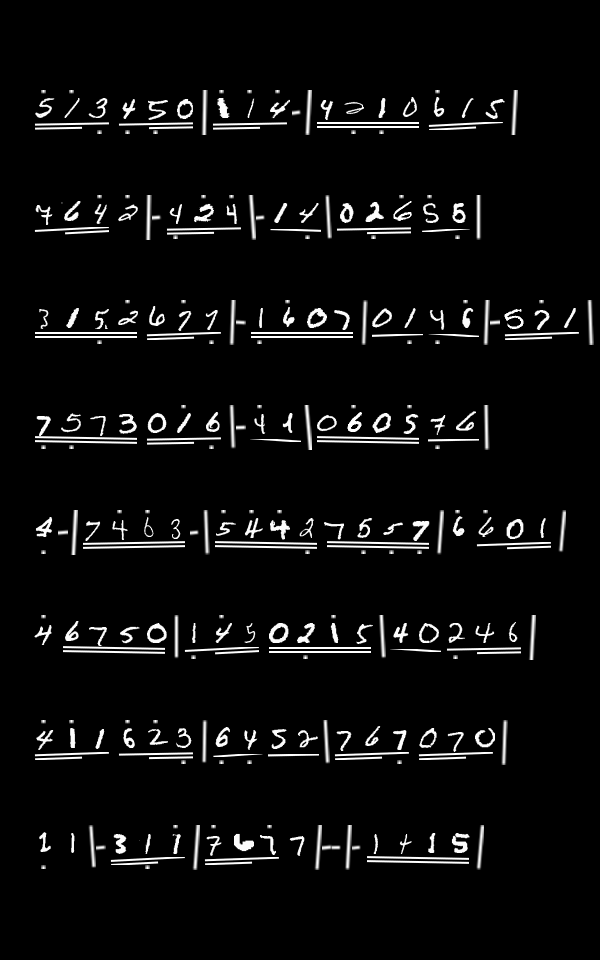 513450|114-|4210615
7642|-424|-14|02655
3152677|-1607|0146|-571|
7573016|-41|060576
4-|7463-|54427557|6601
46750|1450215|40246
411623|6452|767070
11|-311|7677|--|-1415